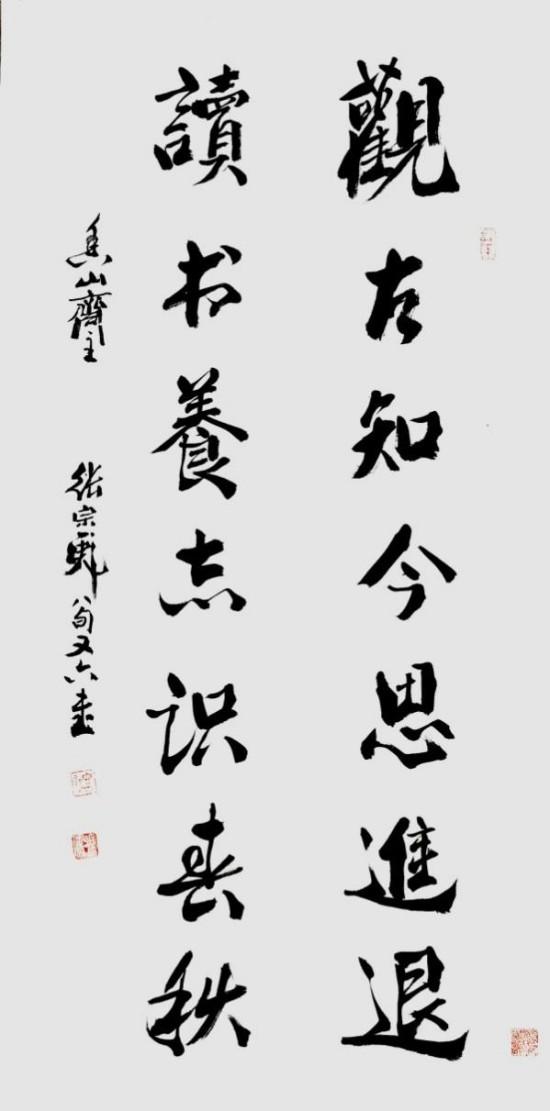 觀古知今思進退
讀书養志识春秋
香山齋主 张宗彪 八旬又六书